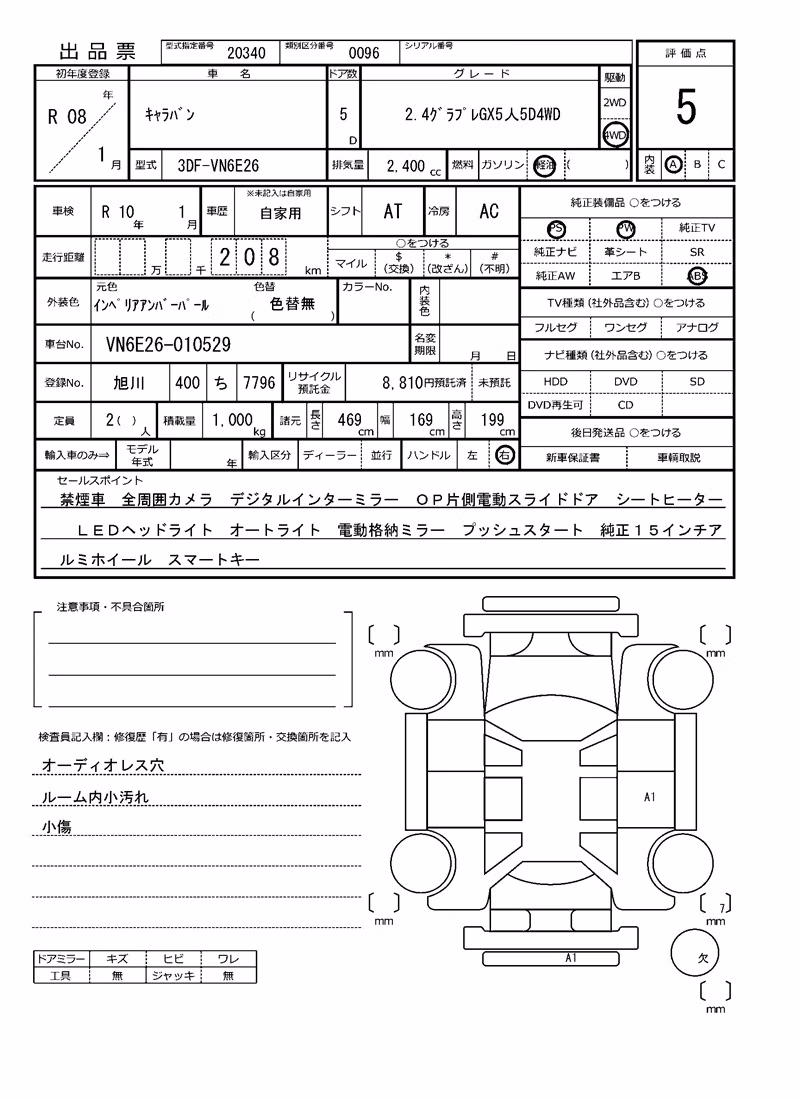 出品票 型式指定番号 20340 類別区分番号 0096 シリアル番号
評価点
5
内装 A B C
初年度登録 車名 ドア数 グレード 駆動
R 08 年 1 月 ｷｬﾗﾊﾞﾝ 5 D 2.4ｸﾞﾗﾌﾟﾚGX5人5D4WD 2WD 4WD
型式 3DF-VN6E26 排気量 2,400 cc 燃料 ガソリン 軽油 ( )
車検 R 10 年 1 月 車歴 ※未記入は自家用 自家用 シフト AT 冷房 AC
走行距離 万 千 2 0 8 km ○をつける
マイル $(交換) *(改ざん) #(不明)
外装色 元色 ｲﾝﾍﾟﾘｱｱﾝﾊﾞｰﾊﾟｰﾙ 色替 ( 色替無 ) カラーNo. 内装色
車台No. VN6E26-010529 名変期限 月 日
登録No. 旭川 400 ち 7796 リサイクル預託金 8,810円預託済 未預託
定員 2( )人 積載量 1,000 kg 諸元 長さ 469 cm 幅 169 cm 高さ 199 cm
輸入車のみ⇒ モデル年式 年 輸入区分 ディーラー 並行 ハンドル 左 右
純正装備品 ○をつける
PS PW 純正TV
純正ナビ 革シート SR
純正AW エアB ABS
TV種類(社外品含む)○をつける
フルセグ ワンセグ アナログ
ナビ種類(社外品含む)○をつける
HDD DVD SD
DVD再生可 CD
後日発送品 ○をつける
新車保証書 車輌取説
セールスポイント
禁煙車 全周囲カメラ デジタルインターミラー ＯＰ片側電動スライドドア シートヒーター
ＬＥＤヘッドライト オートライト 電動格納ミラー プッシュスタート 純正１５インチア
ルミホイール スマートキー
注意事項・不具合箇所
検査員記入欄：修復歴「有」の場合は修復箇所・交換箇所を記入
オーディオレス穴
ルーム内小汚れ
小傷
ドアミラー キズ ヒビ ワレ
工具 無 ジャッキ 無
〔 〕mm 〔 〕mm
A1
〔 〕mm 〔 7〕mm
A1
欠
〔 〕mm